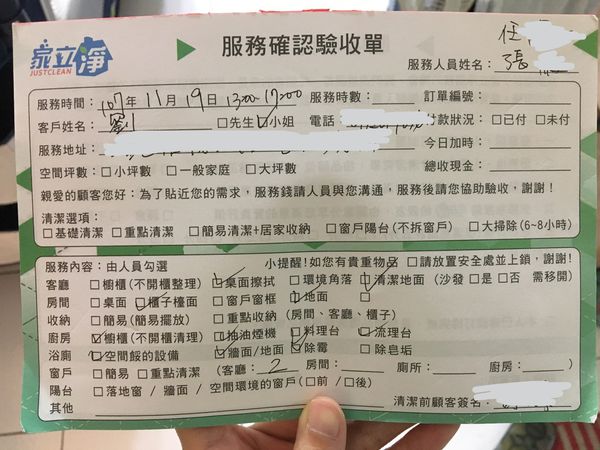 家立淨
JUSTCLEAN
服務確認驗收單
服務人員姓名: 任
張
服務時間: 107年 11月 19日 13:00-17:00 服務時數: 訂單編號:
客戶姓名: 劉 □先生□小姐 電話 付款狀況: □已付 □未付
服務地址: 今日加時:
空間坪數: □小坪數 □一般家庭 □大坪數 總收現金:
親愛的顧客您好:為了貼近您的需求,服務錢請人員與您溝通,服務後請您協助驗收,謝謝!
清潔選項:
□基礎清潔 □重點清潔 □簡易清潔+居家收納 □窗戶陽台(不拆窗戶) □大掃除(6~8小時)
服務內容:由人員勾選 小提醒!如您有貴重物品 □請放置安全處並上鎖,謝謝!
客廳 □櫥櫃(不開櫃整理) □桌面擦拭 □環境角落 □清潔地面 (沙發 □是 □否 需移開)
房間 □桌面 □櫃子檯面 □窗戶窗框 □地面 □
收納 □簡易(簡易擺放) □重點收納 (房間、客廳、櫃子)
廚房 □櫥櫃(不開櫃清理) □抽油煙機 □料理台 □流理台
浴廁 □空間綏的設備 □牆面/地面 □除霉 □除皂垢
窗戶 □簡易 □重點清潔 (客廳: 2 房間: 廁所: 廚房: )
陽台 □落地窗 / 牆面 / 空間環境的窗戶(□前 / □後)
其他 清潔前顧客簽名: